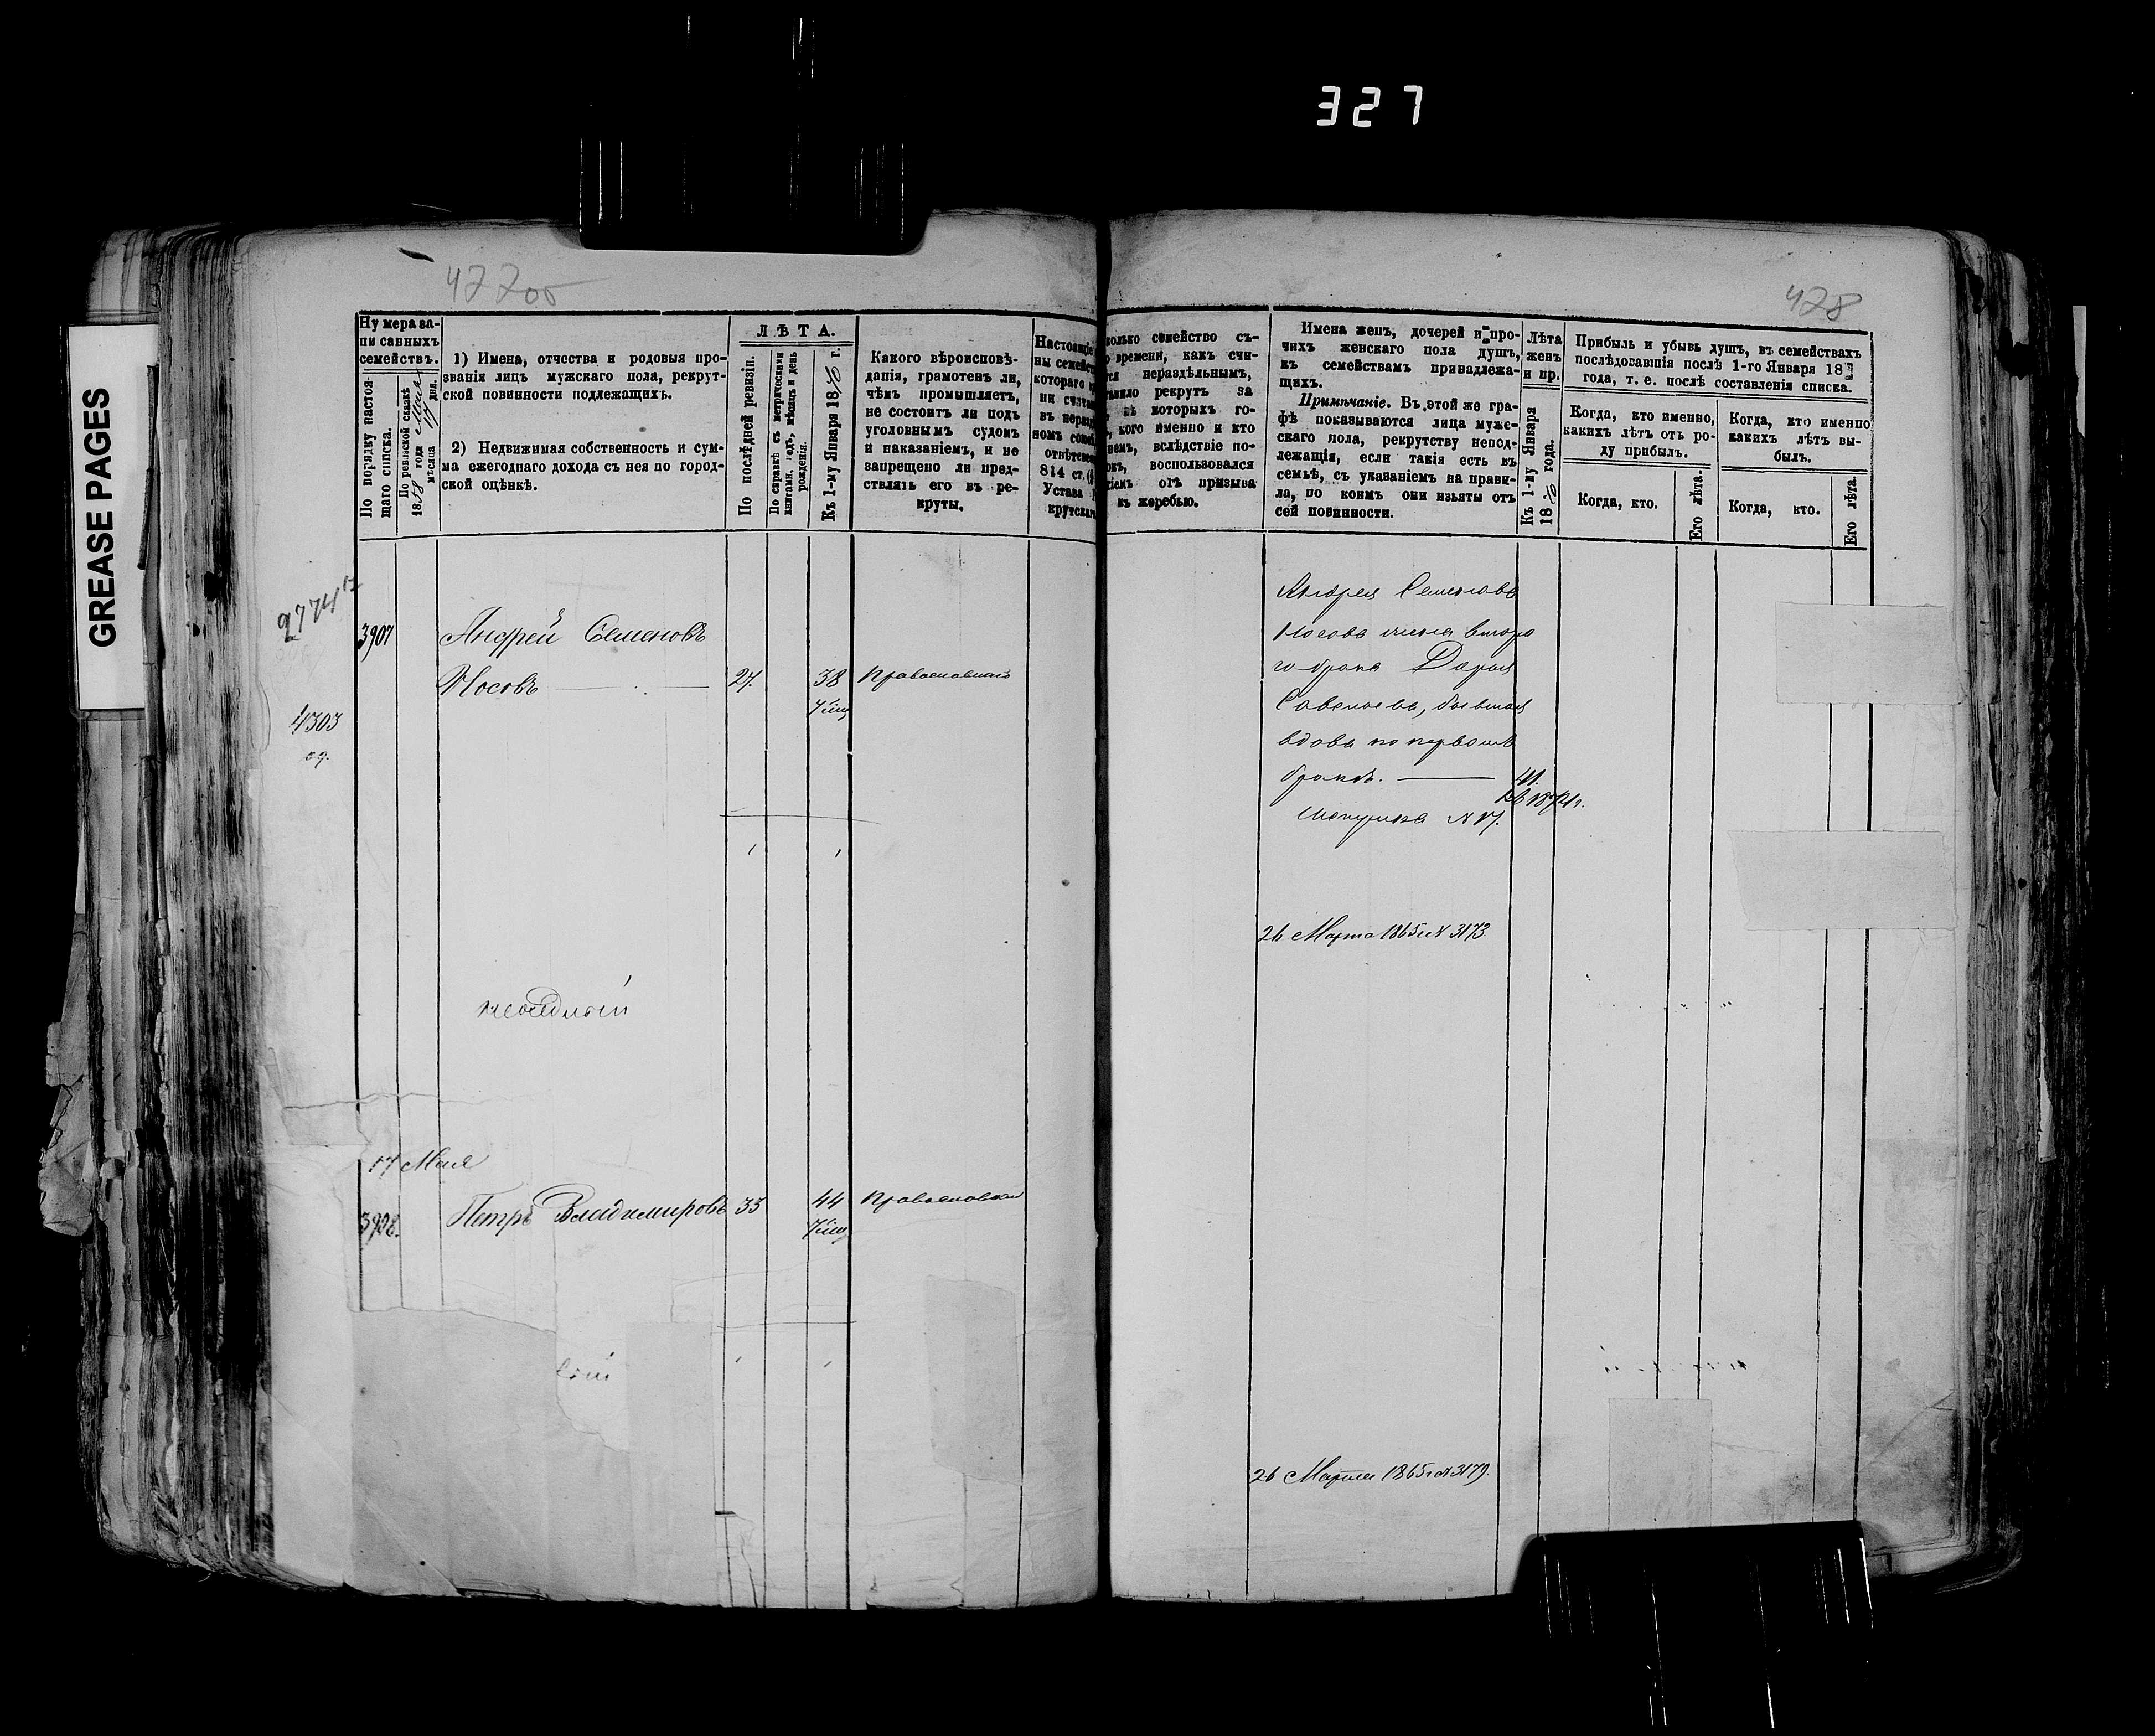 327
GREASE PAGES
428
Нумера за-
писанныхъ
семействъ.
По порядку настоя-
щаго списка.
По ревизской сказкѣ
1858 года
мѣсяца 17 дня.
1) Имена, отчества и родовыя про-
званія лицъ мужскаго пола, рекрут-
ской повинности подлежащихъ.
2) Недвижимая собственность и сум-
ма ежегоднаго дохода съ нея по город-
ской оцѣнкѣ.
ЛѢТА.
По послѣдней ревизіи.
По справкѣ съ метрическими
книгами, годъ, мѣсяцъ и день
рожденія.
Къ 1-му Января 18 г.
Какого вѣроисповѣ-
данія, грамотенъ ли,
чѣмъ промышляетъ,
не состоитъ ли подъ
уголовнымъ судомъ
и наказаніемъ, и не
запрещено ли пред-
ставлять его въ ре-
круты.
Настоящіе
ны семейст
котораго
ни счита
въ нераз
номъ
отвѣтс
814 ст.
Устава
крутскаго
колько семейство съ-
времени, какъ счи-
тся нераздѣльнымъ,
авило рекрутъ за
въ которыхъ го-
кого именно и кто
немъ, вслѣдствіе по-
окъ, воспользовался
тіемъ отъ призыва
къ жеребью.
Имена женъ, дочерей и про-
чихъ женскаго пола душъ,
къ семействамъ принадлежа-
щихъ.
Примѣчаніе. Въ этой же гра-
фѣ показываются лица муже-
скаго пола, рекрутству непод-
лежащія, если такія есть въ
семьѣ, съ указаніемъ на прави-
ла, по коимъ они изъяты отъ
сей повинности.
Лѣта
женъ
и пр.
Къ 1-му Января
18 года.
Прибыль и убыль душъ, въ семействахъ
послѣдовавшія послѣ 1-го Января 18
года, т. е. послѣ составленія списка.
Когда, кто именно,
какихъ лѣтъ отъ ро-
ду прибылъ.
Когда, кто именно
какихъ лѣтъ вы-
былъ.
Когда, кто.
Его лѣта.
Когда, кто.
Его лѣта.
3907
Андрей Семеновъ
Носовъ
27.
38
Православнаго
4303
Андрея Семенова
Носова жена втора
го брака Дарья
Савельева, бывшая
вдова по первому
браку.
41.
26 Марта 1865 г. № 3173.
17 Мая
3908.
Петръ Владимировъ
33
44
Православнаго
26 Марта 1865 г. № 3179.